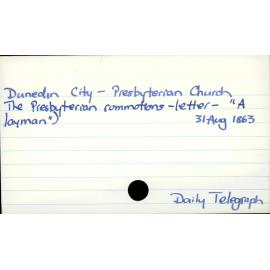 Dunedin City - Presbyterian Church
The Presbyterian commotions - letter - "A
layman")
31 Aug 1863
Daily Telegraph